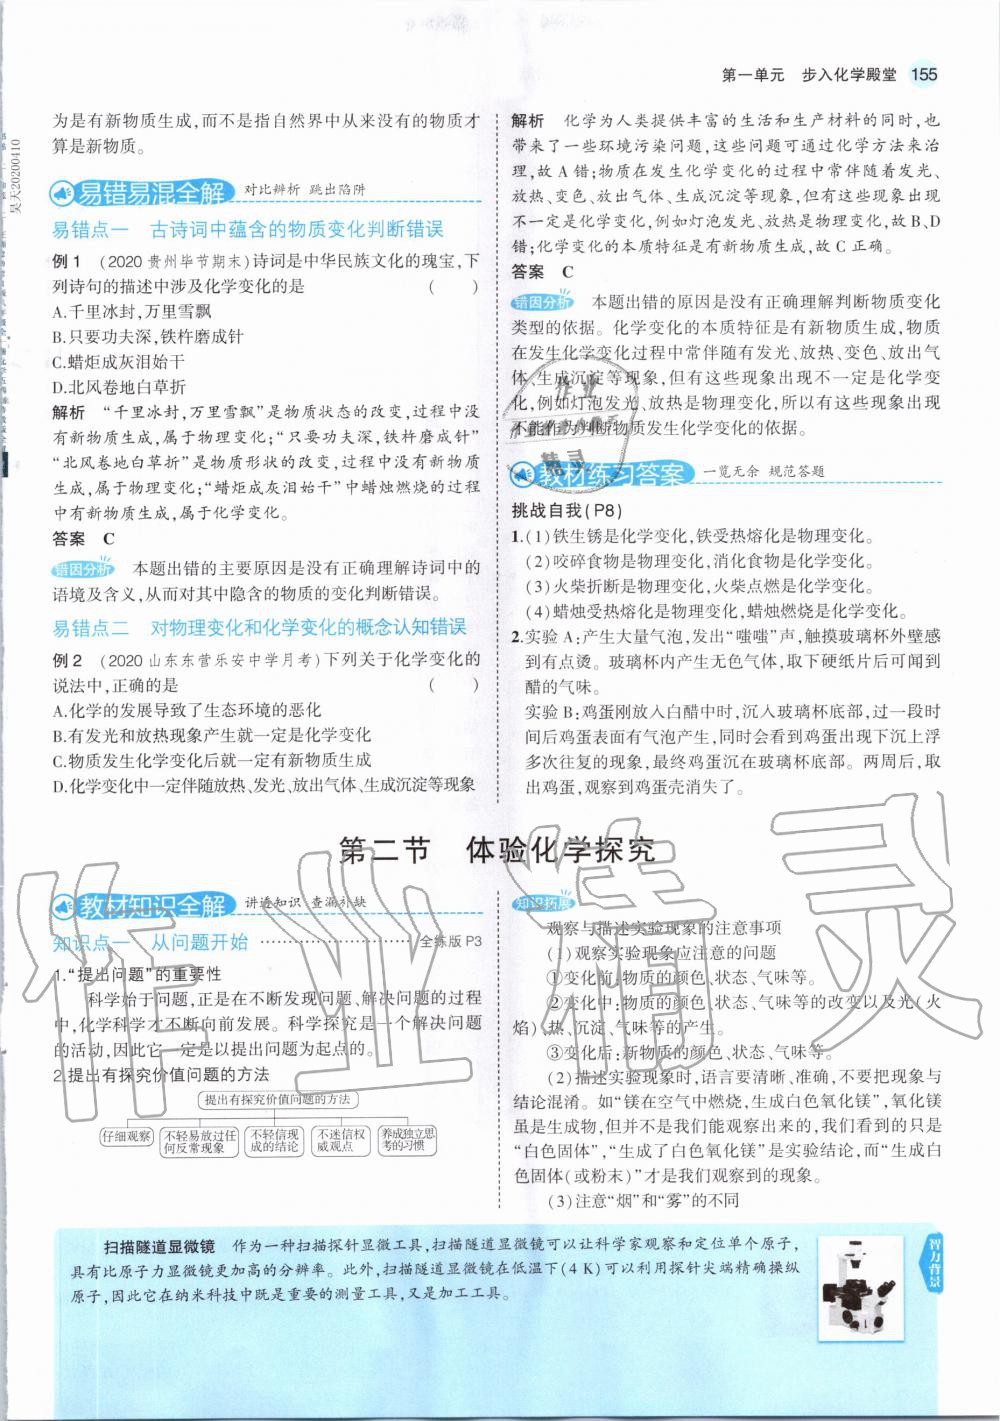 第一单元　步入化学殿堂　155
为是有新物质生成,而不是指自然界中从来没有的物质才
算是新物质。
易错易混全解　对比辨析 跳出陷阱
易错点一　古诗词中蕴含的物质变化判断错误
例 1　(2020 贵州毕节期末)诗词是中华民族文化的瑰宝,下
列诗句的描述中涉及化学变化的是　(　　)
A.千里冰封,万里雪飘
B.只要功夫深,铁杵磨成针
C.蜡炬成灰泪始干
D.北风卷地白草折
解析　“千里冰封,万里雪飘”是物质状态的改变,过程中没
有新物质生成,属于物理变化;“只要功夫深,铁杵磨成针”
“北风卷地白草折”是物质形状的改变,过程中没有新物质
生成,属于物理变化;“蜡炬成灰泪始干”中蜡烛燃烧的过程
中有新物质生成,属于化学变化。
答案　C
错因分析　本题出错的主要原因是没有正确理解诗词中的
语境及含义,从而对其中隐含的物质的变化判断错误。
易错点二　对物理变化和化学变化的概念认知错误
例 2　(2020 山东东营乐安中学月考)下列关于化学变化的
说法中,正确的是　(　　)
A.化学的发展导致了生态环境的恶化
B.有发光和放热现象产生就一定是化学变化
C.物质发生化学变化后就一定有新物质生成
D.化学变化中一定伴随放热、发光、放出气体、生成沉淀等现象
解析　化学为人类提供丰富的生活和生产材料的同时,也
带来了一些环境污染问题,这些问题可通过化学方法来治
理,故 A 错;物质在发生化学变化的过程中常伴随着发光、
放热、变色、放出气体、生成沉淀等现象,但有这些现象出现
不一定是化学变化,例如灯泡发光、放热是物理变化,故 B、D
错;化学变化的本质特征是有新物质生成,故 C 正确。
答案　C
错因分析　本题出错的原因是没有正确理解判断物质变化
类型的依据。化学变化的本质特征是有新物质生成,物质
在发生化学变化过程中常伴随有发光、放热、变色、放出气
体、生成沉淀等现象,但有这些现象出现不一定是化学变
化,例如灯泡发光、放热是物理变化,所以有这些现象出现
不能作为判断物质发生化学变化的依据。
教材练习答案　一览无余 规范答题
挑战自我(P8)
1.(1)铁生锈是化学变化,铁受热熔化是物理变化。
(2)咬碎食物是物理变化,消化食物是化学变化。
(3)火柴折断是物理变化,火柴点燃是化学变化。
(4)蜡烛受热熔化是物理变化,蜡烛燃烧是化学变化。
2.实验 A:产生大量气泡,发出“嗤嗤”声,触摸玻璃杯外壁感
到有点烫。玻璃杯内产生无色气体,取下硬纸片后可闻到
醋的气味。
实验 B:鸡蛋刚放入白醋中时,沉入玻璃杯底部,过一段时
间后鸡蛋表面有气泡产生,同时会看到鸡蛋出现下沉上浮
多次往复的现象,最终鸡蛋沉在玻璃杯底部。两周后,取
出鸡蛋,观察到鸡蛋壳消失了。
第二节　体验化学探究
教材知识全解　讲透知识 查漏补缺
知识点一　从问题开始 …………………… 全练版 P3
1.“提出问题”的重要性
科学始于问题,正是在不断发现问题、解决问题的过程
中,化学科学才不断向前发展。科学探究是一个解决问题
的活动,因此它一定是以提出问题为起点的。
2.提出有探究价值问题的方法
提出有探究价值问题的方法
仔细观察
不轻易放过任
何反常现象
不轻信现
成的结论
不迷信权
威观点
养成独立思
考的习惯
知识拓展
观察与描述实验现象的注意事项
(1)观察实验现象应注意的问题
①变化前:物质的颜色、状态、气味等。
②变化中:物质的颜色、状态、气味等的改变以及光(火
焰)、热、沉淀、气味等的产生。
③变化后:新物质的颜色、状态、气味等。
(2)描述实验现象时,语言要清晰、准确,不要把现象与
结论混淆。如“镁在空气中燃烧,生成白色氧化镁”,氧化镁
虽是生成物,但并不是我们能观察出来的,我们看到的只是
“白色固体”,“生成了白色氧化镁”是实验结论,而“生成白
色固体(或粉末)”才是我们观察到的现象。
(3)注意“烟”和“雾”的不同
扫描隧道显微镜　作为一种扫描探针显微工具,扫描隧道显微镜可以让科学家观察和定位单个原子,
具有比原子力显微镜更加高的分辨率。此外,扫描隧道显微镜在低温下(4 K)可以利用探针尖端精确操纵
原子,因此它在纳米科技中既是重要的测量工具,又是加工工具。
智力背景
昊天20200410
作业精灵
作业
精灵